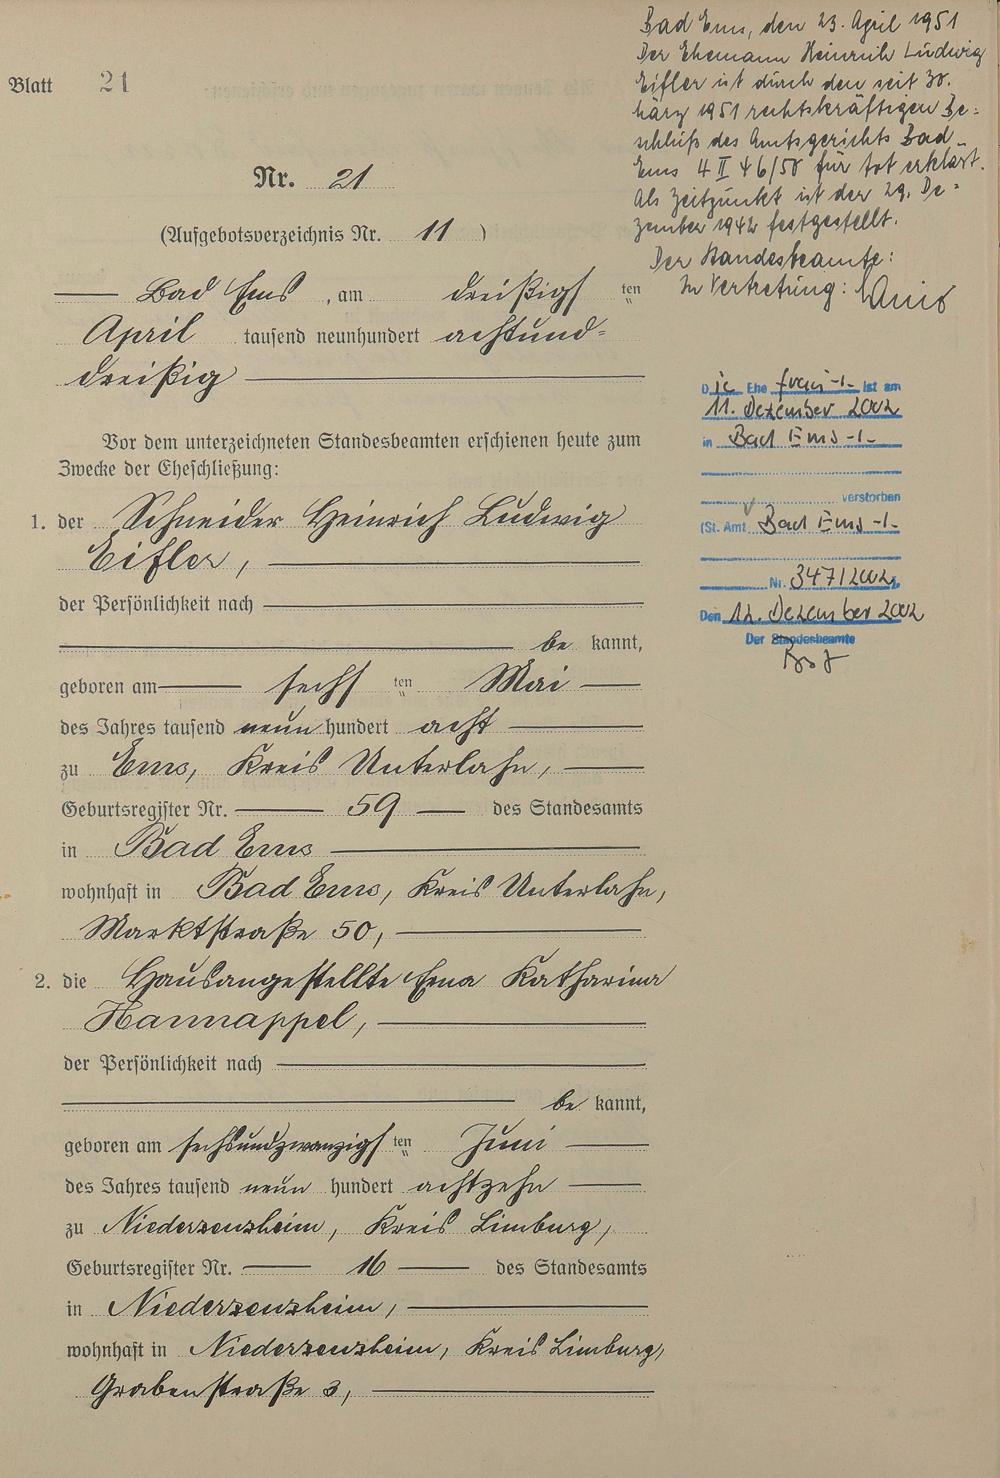 Blatt 21
Nr. 21
(Aufgebotsverzeichnis Nr. 11)
Bad Ems, am dreißigsten
April tausend neunhundert achtund-
dreißig
Vor dem unterzeichneten Standesbeamten erschienen heute zum
Zwecke der Eheschließung:
1. der Schneider Heinrich Ludwig
Eifler,
der Persönlichkeit nach
be kannt,
geboren am sechsten Mai
des Jahres tausend neun hundert acht
zu Ems, Kreis Unterlahn,
Geburtsregister Nr. 59 des Standesamts
in Bad Ems
wohnhaft in Bad Ems, Kreis Unterlahn,
Marktstraße 50,
2. die Hausangestellte Erna Katharina
Hannappel,
der Persönlichkeit nach
be kannt,
geboren am sechsundzwanzigsten Juni
des Jahres tausend neun hundert achtzehn
zu Niederzeuzheim, Kreis Limburg,
Geburtsregister Nr. 16 des Standesamts
in Niederzeuzheim,
wohnhaft in Niederzeuzheim, Kreis Limburg,
Grabenstraße 3,
Bad Ems, den 23. April 1951
Der Ehemann Heinrich Ludwig
Eifler ist durch den seit 30.
März 1951 rechtskräftigen Be-
schluß des Amtsgerichts Bad
Ems 4 II 46/50 für tot erklärt.
Als Zeitpunkt ist der 29. De-
zember 1942 festgestellt.
Der Standesbeamte:
In Vertretung:
Die Ehe frau -/- ist am
11. Dezember 2002
in Bad Ems -/-
verstorben
(St. Amt Bad Ems -/-
Nr. 347/2002)
Den 12. Dezember 2002
Der Standesbeamte